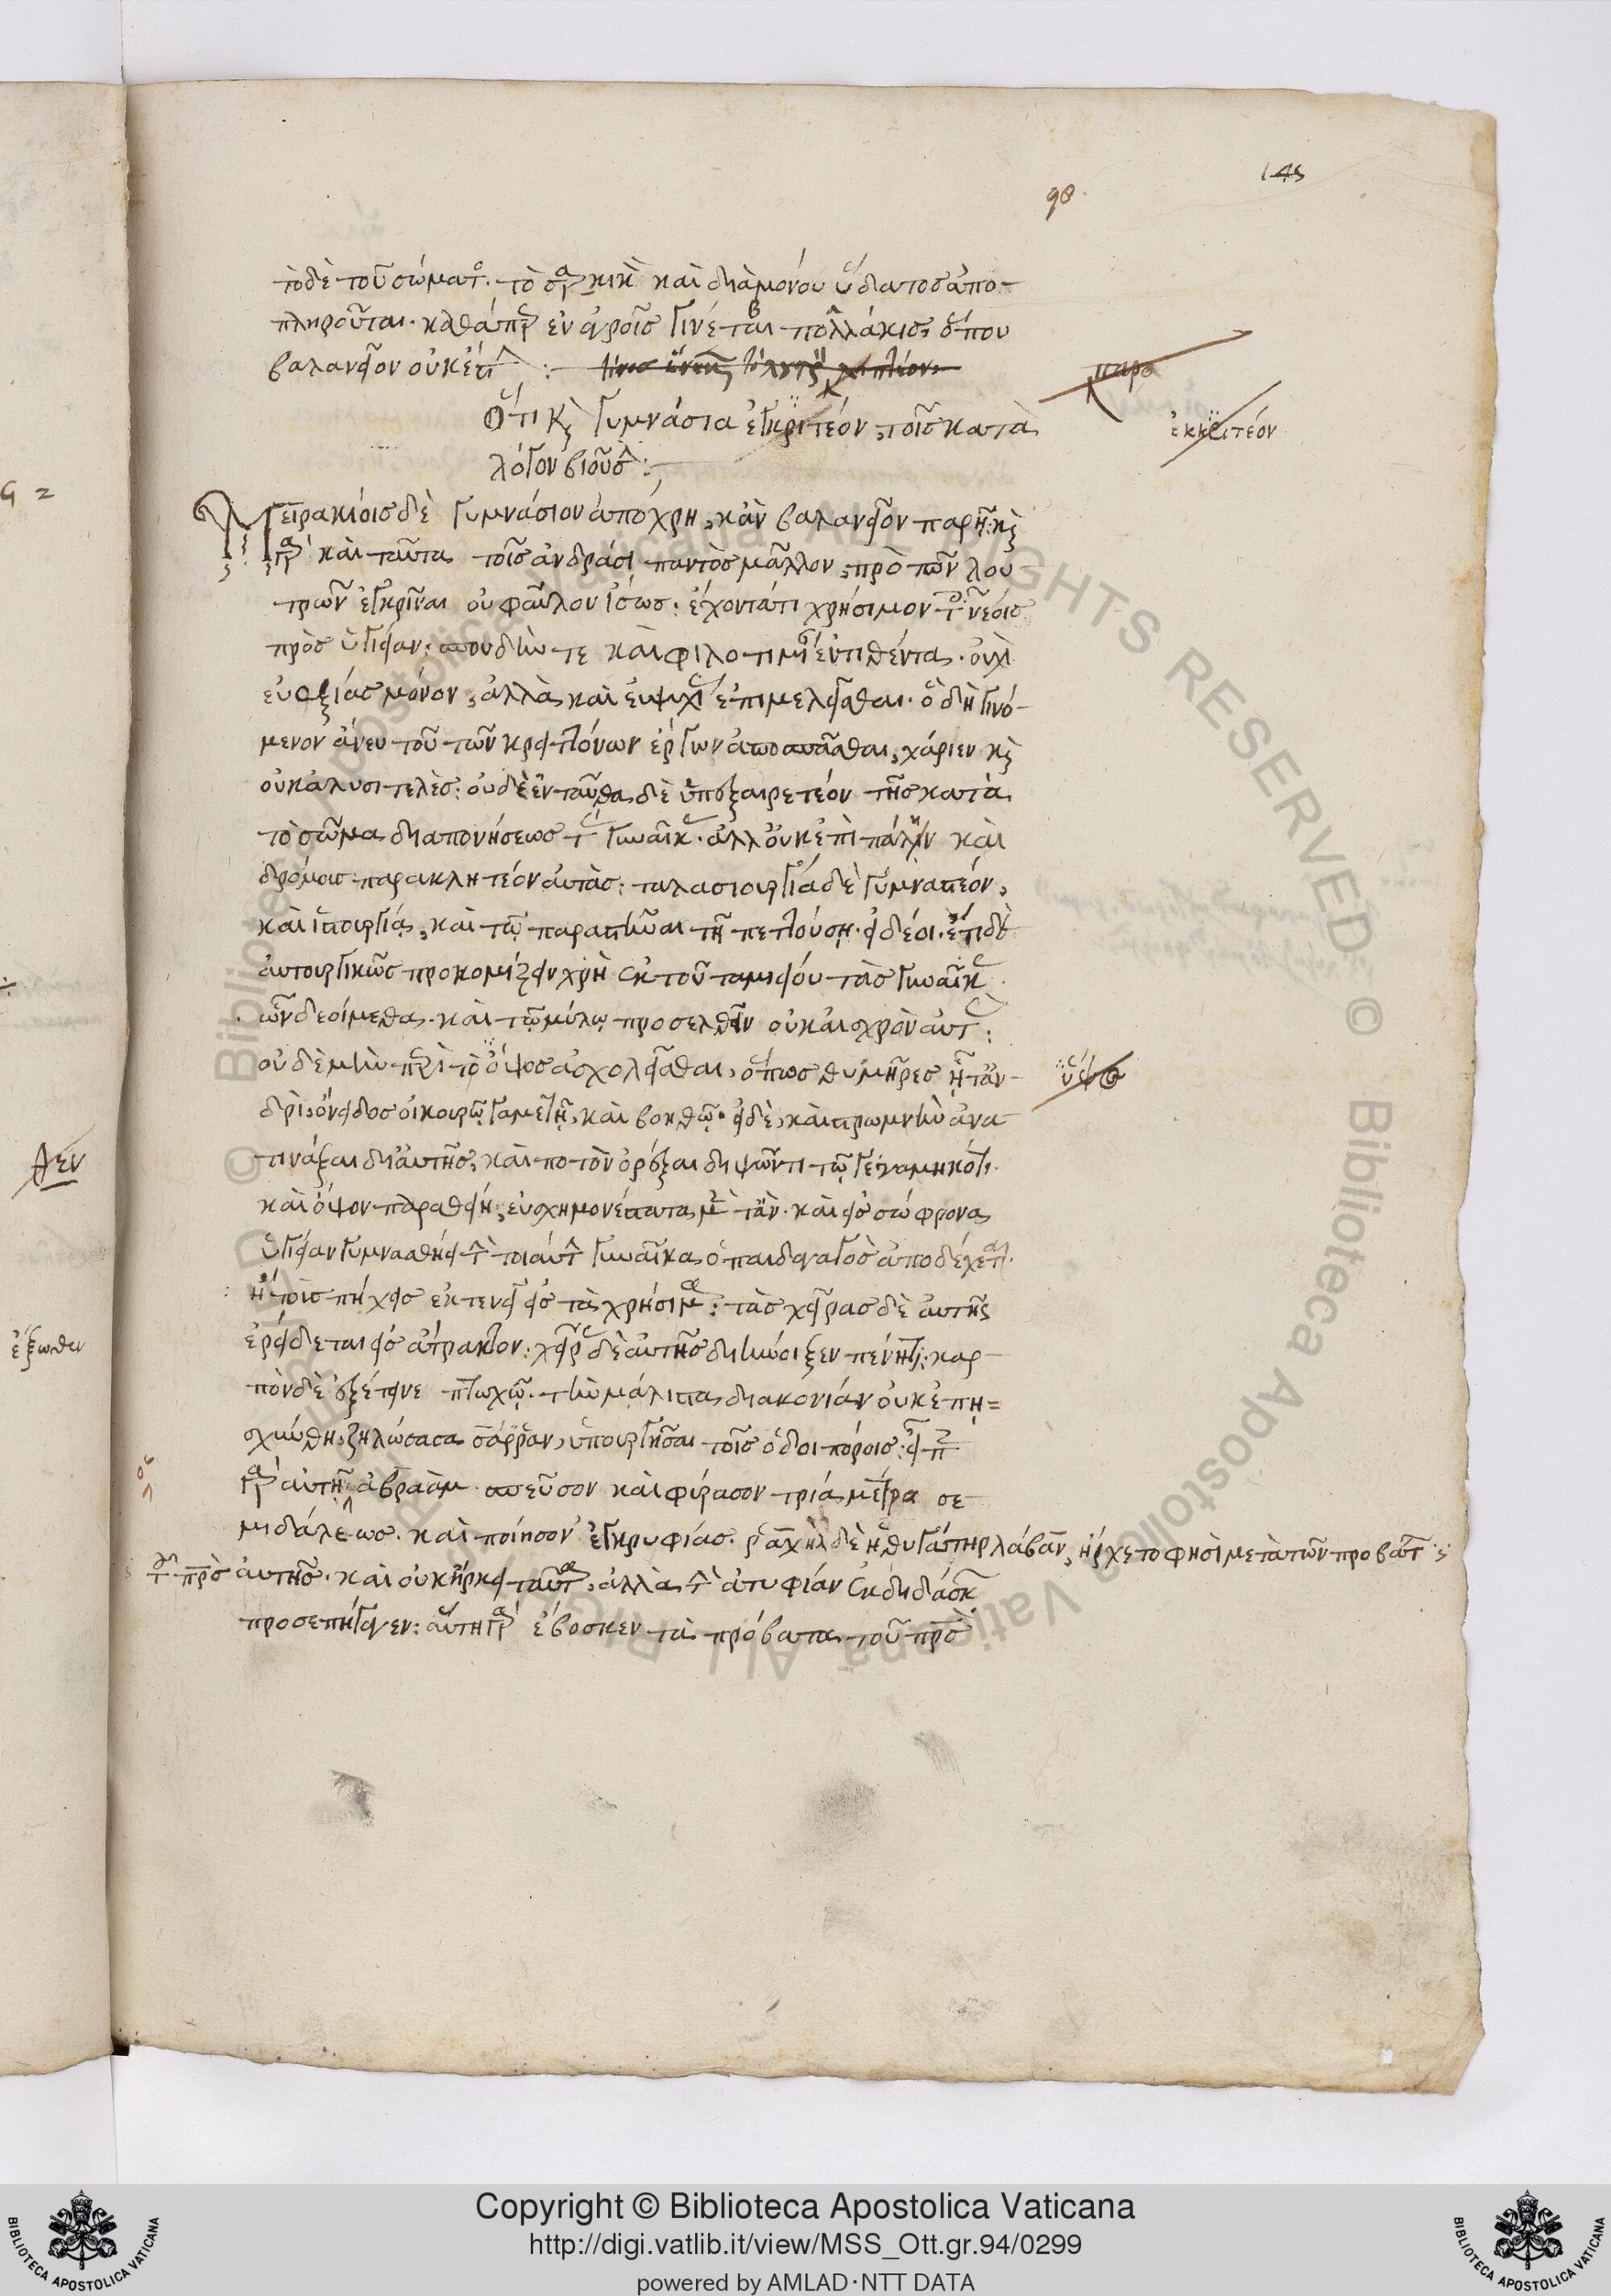 145
98
τὸ δὲ τοῦ σώματ. τὸ γὰρ κικ καὶ διὰ μόνου ὕδατος ἀπο-
πληροῦται. καθάπερ ἐν ἀγροῖς γίνεται πολλάκις, ὅπου
βαλανεῖον οὐκ ἔστι :
παρα
Ὅτι καὶ γυμνάσια ἐγκριτέον, τοῖς κατὰ
ἐκκριτέον
λόγον βιοῦσι :
Μειρακίοις δὲ γυμνάσιον ἀπόχρη, κἂν βαλανεῖον παρῇ. καὶ
γὰρ καὶ ταῦτα τοῖς ἀνδράσι παντὸς μᾶλλον, πρὸ τῶν λου-
τρῶν ἐγκρῖναι οὐ φαῦλον ἴσως. ἔχοντά τι χρήσιμον τοῖς νέοις
πρὸς ὑγίειαν. σπουδήν τε καὶ φιλοτιμίαν ἐντιθέντα. οὐχὶ
εὐεξίας μόνον, ἀλλὰ καὶ εὐψυχίας ἐπιμελεῖσθαι. ὃ δὴ γινό-
μενον ἄνευ τοῦ τῶν κρειττόνων ἔργων ἀποσπᾶσθαι, χάριεν καὶ
οὐκ ἀλυσιτελές. οὐδὲ ἐνταῦθα δὲ ὑπεξαιρετέον τῆς κατὰ
τὸ σῶμα διαπονήσεως τὰς γυναῖκας. ἀλλ' οὐκ ἐπὶ πάλην καὶ
δρόμους παρακλητέον αὐτάς. ταλασιουργίᾳ δὲ γυμναστέον,
καὶ ἱστουργίᾳ, καὶ τῷ παραστῆναι τῇ πεττούσῃ. εἰ δέοι. ἔτι δὲ
αὐτουργικῶς προκομίζειν χρὴ ἐκ τοῦ ταμιείου τὰς γυναῖκας
ὧν δεοίμεθα. καὶ τῷ μύλῳ προσελθεῖν οὐκ αἰσχρὸν αὐταῖς.
οὐδὲ μὴν περὶ τὸ ὄψος ἀσχολεῖσθαι, ὅπως θυμῆρες ᾖ τἀν-
ὕψος
δρί, ὄνειδος οἰκουρῷ γαμετῇ, καὶ βοηθῷ. εἰ δὲ, καὶ στρωμνὴν ἀνα-
τινάξαι δι' αὐτῆς, καὶ ποτὸν ὀρέξαι διψῶντι τῷ γεγαμηκότι.
καὶ ὄψον παραθείη, εὐσχημονέστατα μὲν ἄν. καὶ εἰς σώφρονα
ὑγίειαν γυμνασθείη τὴν τοιαύτην γυναῖκα ὁ παιδαγωγὸς ἀποδέχεται.
ἣ τοὺς πήχεις ἐκτενεῖ εἰς τὰ χρήσιμα. τὰς χεῖρας δὲ αὐτῆς
ἐρείδεται εἰς ἄτρακτον. χεῖρας δὲ αὐτῆς διήνοιξεν πένητι. καρ-
πὸν δὲ ἐξέτεινε πτωχῷ. τὴν μάλιστα διακονίαν οὐκ ἐπῃ=
σχύνθη, ζηλώσασα σάρραν, ὑπουργῆσαι τοῖς ὁδοιπόροις. εἶπε
γὰρ αὐτῇ ἀβραάμ. σπεῦσον καὶ φύρασον τρία μέτρα σε-
μιδάλεως. καὶ ποίησον ἐγκρυφίας. ῥαχὴλ δὲ ἡ θυγάτηρ λάβαν, ἤρχετο φησὶ μετὰ τῶν προβάτων
τοῦ πατρὸς αὐτῆς. καὶ οὐκ ἤρκει ταῦτα, ἀλλὰ τὴν ἀτυφίαν ἐκδιδάσκων
προσεπήγαγεν. αὕτη γὰρ ἔβοσκεν τὰ πρόβατα τοῦ πατρὸς
ἔξωθεν
Copyright © Biblioteca Apostolica Vaticana
http://digi.vatlib.it/view/MSS_Ott.gr.94/0299
powered by AMLAD·NTT DATA
BIBLIOTECA APOSTOLICA VATICANA
BIBLIOTECA APOSTOLICA VATICANA